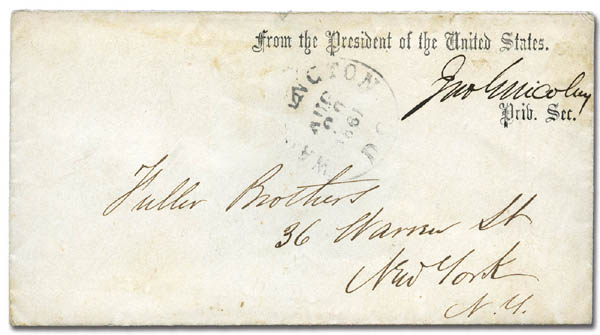 From the President of the United States.
Jno G Nicolay
Priv. Sec.
WASHINGTON D
AUG
1861
Fuller Brothers
36 Warren St
New York
N. Y.